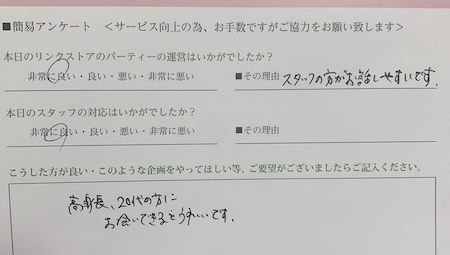 ■簡易アンケート　＜サービス向上の為、お手数ですがご協力をお願い致します＞
本日のリンクストアのパーティーの運営はいかがでしたか？
非常に良い・良い・悪い・非常に悪い　■その理由　スタッフの方がお話しやすいです。
本日のスタッフの対応はいかがでしたか？
非常に良い・良い・悪い・非常に悪い　■その理由
こうした方が良い・このような企画をやってほしい等、ご要望がございましたらご記入ください。
高身長、20代の方に
お会いできるとうれしいです。